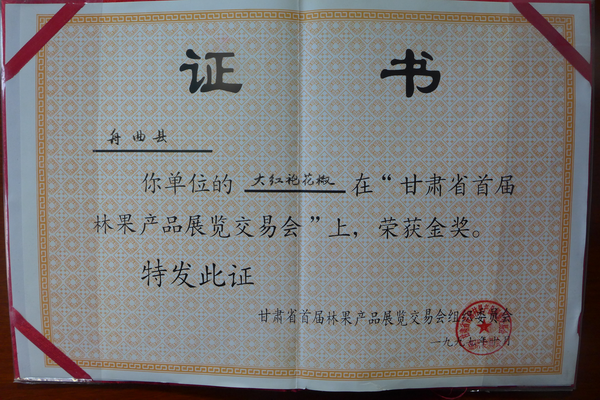 证书
舟曲县
你单位的 大红袍花椒 在“甘肃省首届
林果产品展览交易会”上，荣获金奖。
特发此证
甘肃省首届林果产品展览交易会组织委员会
一九九七年 月